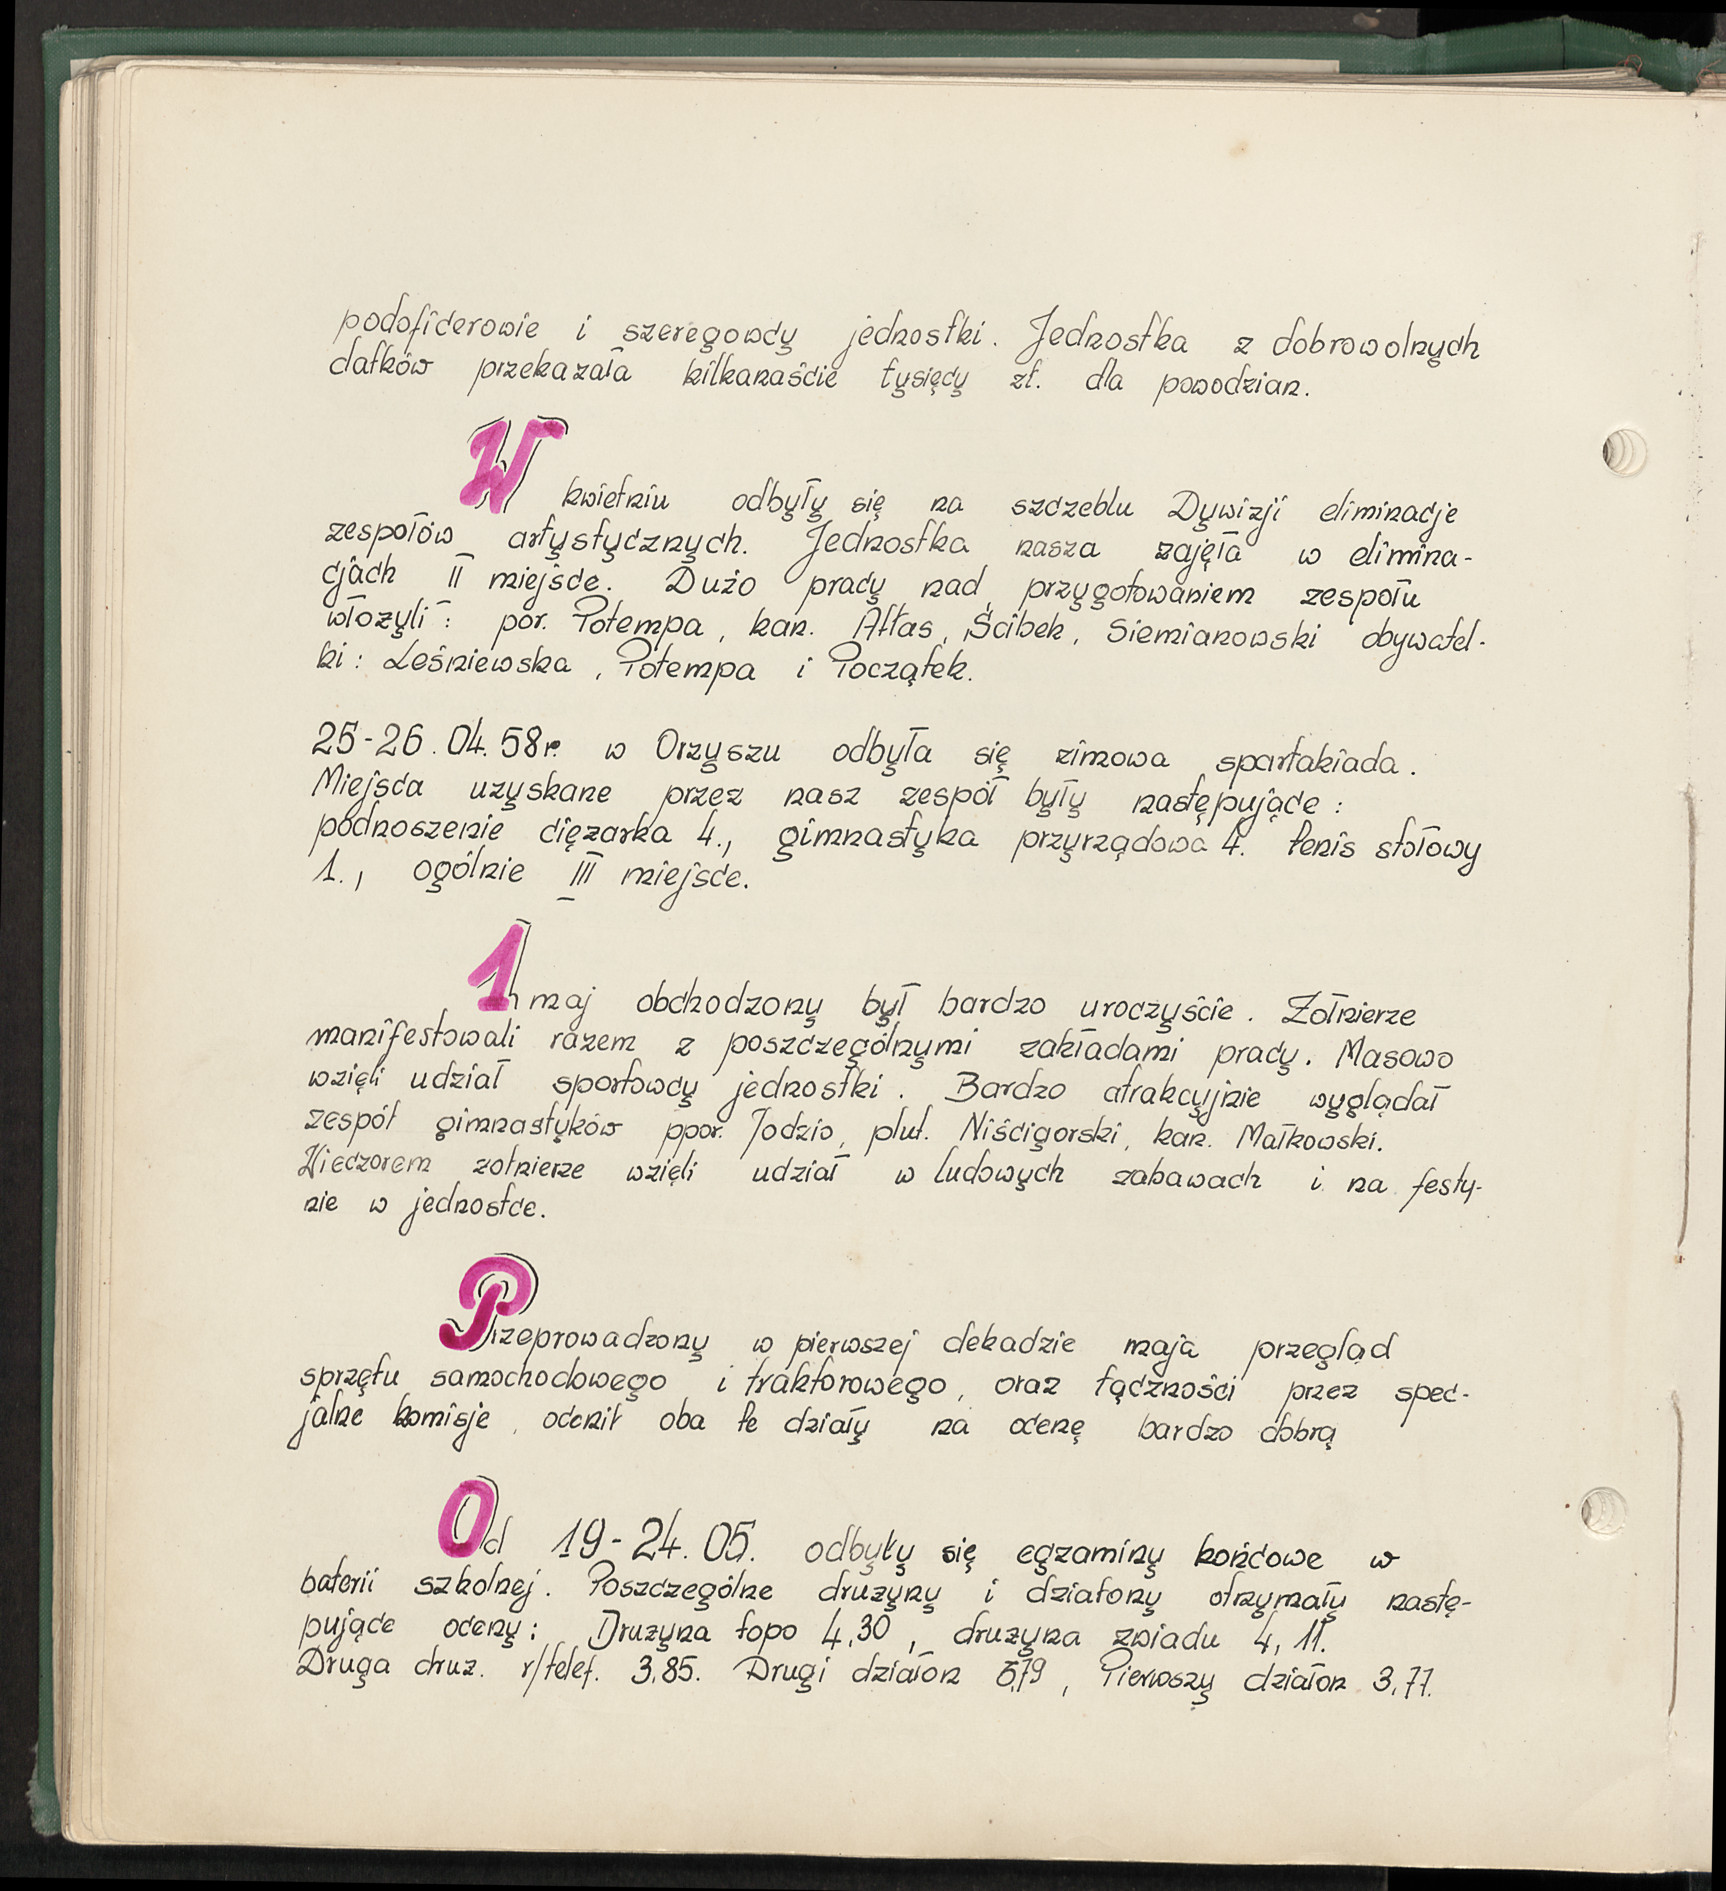 podoficerowie i szeregowcy jednostki. Jednostka z dobrowolnych
datków przekazała kilkanaście tysięcy zł. dla powodzian.
W kwietniu odbyły się na szczeblu Dywizji eliminacje
zespołów artystycznych. Jednostka nasza zajęła w elimina-
cjach II miejsce. Dużo pracy nad przygotowaniem zespołu
włożyli: por. Potempa, kan. Atłas, Ścibek, Siemianowski obywatel-
ki: Leśniewska, Potempa i Początek.
25-26.04.58r. w Orzyszu odbyła się zimowa spartakiada.
Miejsca uzyskane przez nasz zespół były następujące:
podnoszenie ciężarka 4., gimnastyka przyrządowa 4. tenis stołowy
1., ogólnie III miejsce.
1 maj obchodzony był bardzo uroczyście. Żołnierze
manifestowali razem z poszczególnymi zakładami pracy. Masowo
wzięli udział sportowcy jednostki. Bardzo atrakcyjnie wyglądał
zespół gimnastyków ppor. Jodzio, plut. Niścigorski, kan. Małkowski.
Wieczorem żołnierze wzięli udział w ludowych zabawach i na festy-
nie w jednostce.
Przeprowadzony w pierwszej dekadzie maja przegląd
sprzętu samochodowego i traktorowego, oraz łączności przez spec-
jalne komisje, ocenił oba te działy na ocenę bardzo dobrą
Od 19-24.05. odbyły się egzaminy końcowe w
baterii szkolnej. Poszczególne drużyny i działony otrzymały nastę-
pujące oceny: Drużyna topo 4,30, drużyna zwiadu 4,11.
Druga druż. r/telef. 3,85. Drugi działon 3,79, Pierwszy działon 3,77.